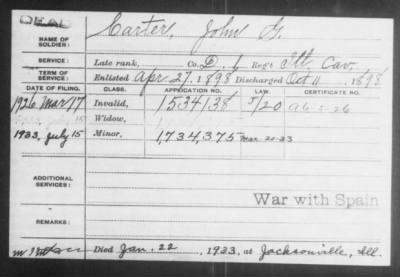 DEAD
NAME OF SOLDIER: Carter, John G.
SERVICE: Late rank, Co. D. 1 Reg't Ill. Cav.
TERM OF SERVICE: Enlisted Apr 27, 1898 Discharged Oct 11, 1898
DATE OF FILING. CLASS. APPLICATION NO. LAW. CERTIFICATE NO.
1926 Mar 17 Invalid, 1534138 5/20 a6-5-26
Widow,
1933, July 15 Minor, 1,734,375 Mar. 20-33
ADDITIONAL SERVICES:
War with Spain
REMARKS:
Died Jan. 22, 1933, at Jacksonville, Ill.